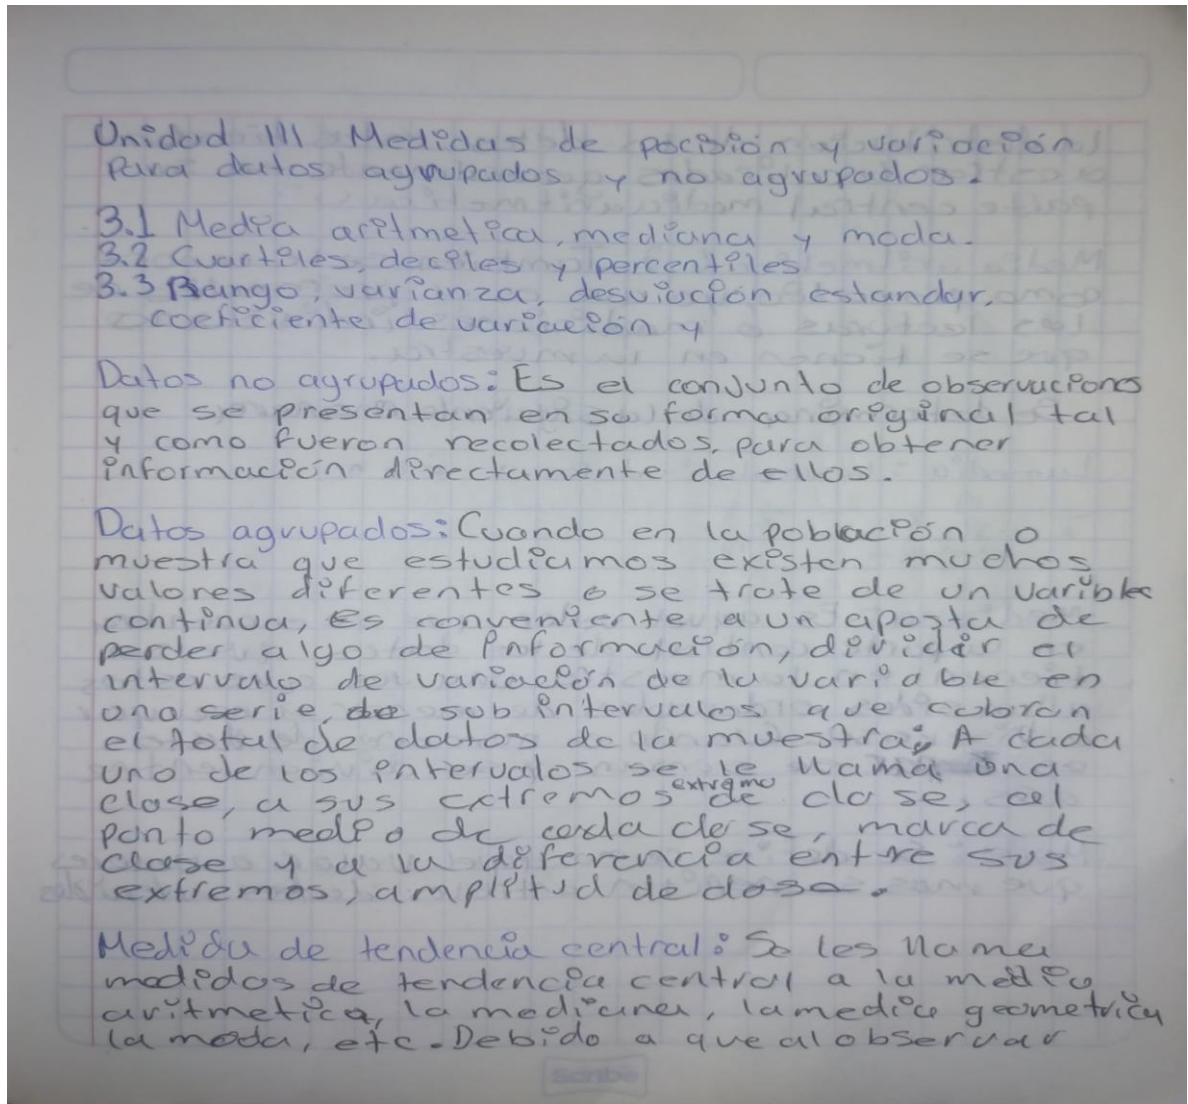 Unidad III Medidas de pocisión y variación
Para datos agrupados y no agrupados.
3.1 Media aritmetica, mediana y moda.
3.2 Cuartiles, deciles y percentiles
3.3 Rango, varianza, desviación estandar,
coeficiente de variación y
Datos no agrupados: Es el conjunto de observaciones
que se presentan en su forma original tal
y como fueron recolectados, para obtener
información directamente de ellos.
Datos agrupados: Cuando en la población o
muestra que estudiamos existen muchos
valores diferentes o se trate de un varible
continua, Es conveniente a un aposta de
perder algo de información, dividir el
intervalo de variación de la variable en
una serie de sub intervalos que cubran
el total de datos de la muestra; A cada
uno de los intervalos se le llama una
clase, a sus extremos extremo de clase, el
punto medio de cada clase, marca de
clase y a la diferencia entre sus
extremos, amplitud de clase.
Medida de tendencia central: Se les llama
medidas de tendencia central a la media
aritmetica, la mediana, la media geometrica
la moda, etc. Debido a que al observar
Scribe